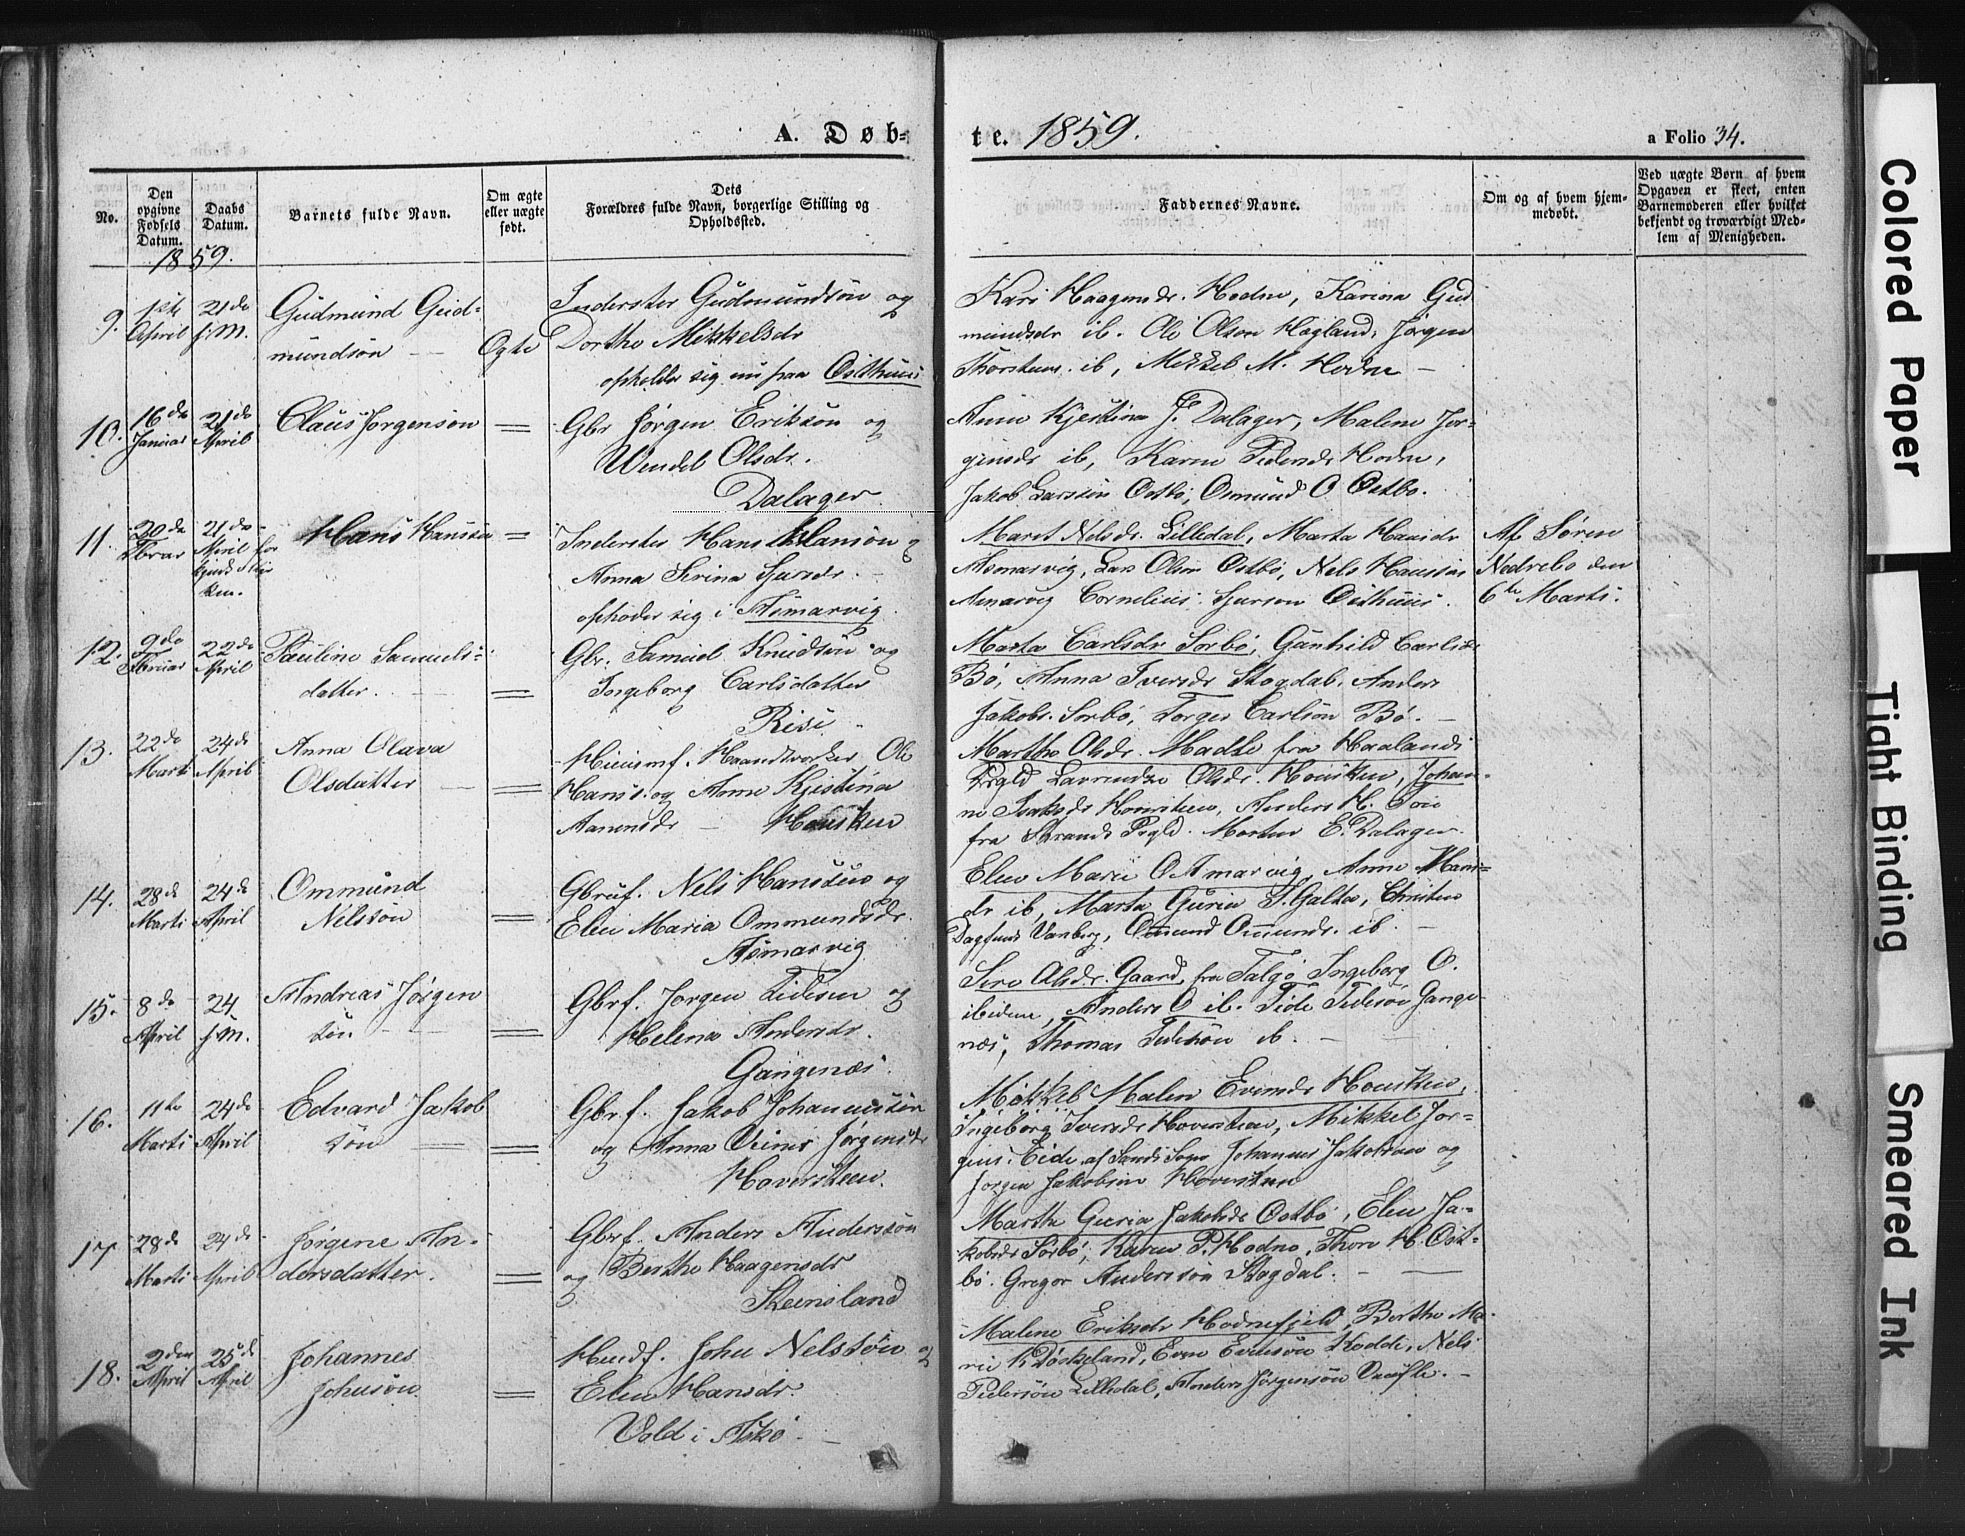 A. Døb-
te. 1859.
a Folio 34.
No.
Den opgivne Fødsels Datum.
Daabs Datum.
Barnets fulde Navn.
Om ægte eller uægte født.
Dets Forældres fulde Navn, borgerlige Stilling og Opholdssted.
Faddernes Navne.
Om og af hvem hjemmedøbt.
Ved uægte Børn af hvem Opgaven er skeet, enten Barnemoderen eller hvilket bekjendt og troværdigt Medlem af Menigheden.
1859.
9.
1ste April
21de f. M.
Gudmund Gud-
mundsøn
Ogte
Inderster Gudmundsøn og
Dorthe Mikkelsdr
opholder sig nu paa Østhuus
Kari Haagensdr. Hodne, Karina Gud
mundsdr ib. Ole Olsen Hogland, Jørgen
Thorstens. ib, Mikkel M. Hodne
10.
16de Januar
21de April
Claus Jørgensøn
Gbr Jørgen Eriksøn og
Wendel Olsdr.
Dalager
Anne Kjestina J. Dalager, Malene Jør-
gensdr ib, Karen Pedersdr Hodne,
Jakob Larssøn Østbø, Osmund O Østbø.
11.
20de Febrar
21de April
Hans Hanssøn
Inderster Hans Hansøn og
Anna Serina Sjursdr.
opholder sig i Asmarvig
Maret Nelsdr. Lilledal, Marta Hansdr
Asmarvig, Lars Olsen Østbø, Nels Hanssøn
Amarvig Cornelius Sjurson Østhuus.
Af Søren
Nedrebø den
6te Marts.
12.
9de Februar
22de April
Pauline Samuels-
datter.
Gbr. Samuel Knudsøn og
Ingeborg Carlsdatter
Rise
Marta Carlsdr Sørbø, Gunhild Carlsdr
Bø, Anna Iversdr Skogdal, Anders
Jakobs. Sørbø, Torger Carlsøn Bø.
13.
22de Marts
24de April
Anna Olava
Olsdatter
Huusmf. Haandværker Ole
Hans. og Anne Kjestina
Aanensdr
Housken
Marthe Olsdr. Madle fra Haalands
Prgld Laurendze Olsdr. Housken, Johan-
ne Isaksdr Housken, Anders H.
fra Strands Prgld. Morten E. Dalager.
14.
28de Marts
24de April
Ommund
Nelsøn
Gbruf. Nels Hanssøn og
Elen Maria Ommundsdr.
Asmarvig
Elen Marie O Amarvig, Anne Hans-
dr ib, Marta Guria S. Galta, Christen
Dagfinds Vanberg, Omund Omunds. ib.
15.
8de April
24 f. M.
Andreas Jørgen
søn
Gbrf. Jørgen Tidesen og
Helena Andersdr.
Gangenæs.
Siri Olsdr. Gaard, fra Talgø, Ingeborg O.
ibidem, Anders O ib. Tide Tidesøn Gange-
næs, Thomas Tidesøn ib.
16.
11te Marts
24de April
Edvard Jakob
søn
Gbrf. Jakob Johannesøn
og Anna Jørgensdr
Hoversteen.
Mikkel Malen Evensdr Housken,
Ingeborg Iversdr Hoversteen, Mikkel Jør-
gens. Eide af Sands Sogn Johannes Jakobsen og
Jørgen Jakobsøn Hoversteen
17
28de Marts
24de April
Jørgene An-
dersdatter.
Gbrf. Anders Anderssøn
og Berthe Haagensdr
Steinsland
Marthe Guria Jakobsdr Østbø, Elen Ja-
kobsdr Sørbø, Karen P. Hodne, Thore H. Øst-
bø. Gregor Anderssøn Skogdal.
18.
2den April
25de April
Johannes
Johnsøn
Husf. John Nelssøn og
Elen Hansdr.
Vold i Askø
Malene Eriksdr Hodnefjeld, Berthe Ma-
rie K Døskeland, Even Evensøn Rodde, Nels
Pedersøn Lilledal, Anders Jørgensøn
Colored Paper
Tight Binding
Smeared Ink